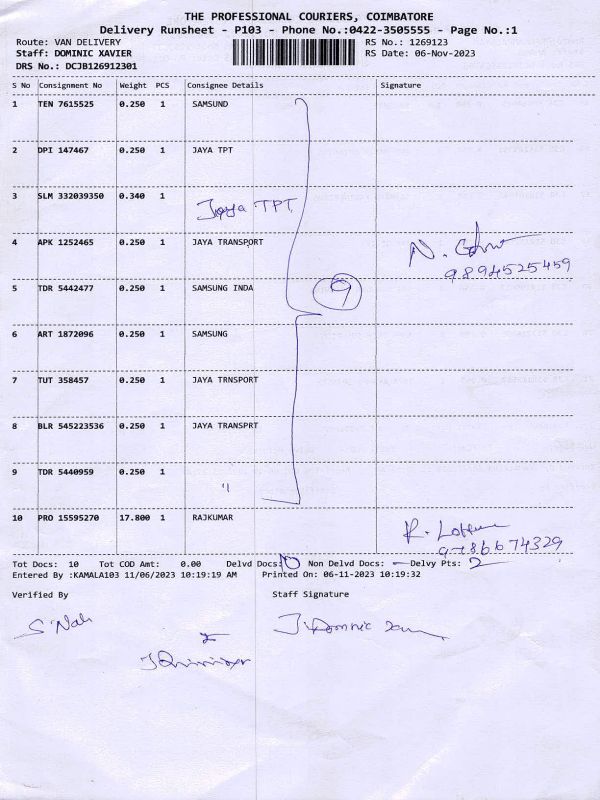 THE PROFESSIONAL COURIERS, COIMBATORE
Delivery Runsheet - P103 - Phone No.:0422-3505555 - Page No.:1
Route: VAN DELIVERY RS No.: 1269123
Staff: DOMINIC XAVIER RS Date: 06-Nov-2023
DRS No.: DCJB126912301
S No Consignment No Weight PCS Consignee Details Signature
1 TEN 7615525 0.250 1 SAMSUND
2 DPI 147467 0.250 1 JAYA TPT
3 SLM 332039350 0.340 1 Jaya TPT
4 APK 1252465 0.250 1 JAYA TRANSPORT N.
9894525459
5 TDR 5442477 0.250 1 SAMSUNG INDA 9
6 ART 1872096 0.250 1 SAMSUNG
7 TUT 358457 0.250 1 JAYA TRNSPORT
8 BLR 545223536 0.250 1 JAYA TRANSPRT
9 TDR 5440959 0.250 1 "
10 PRO 15595270 17.800 1 RAJKUMAR R.
9786674329
Tot Docs: 10 Tot COD Amt: 0.00 Delvd Docs: 10 Non Delvd Docs: — Delvy Pts: 2
Entered By :KAMALA103 11/06/2023 10:19:19 AM Printed On: 06-11-2023 10:19:32
Verified By Staff Signature
J. Dominic